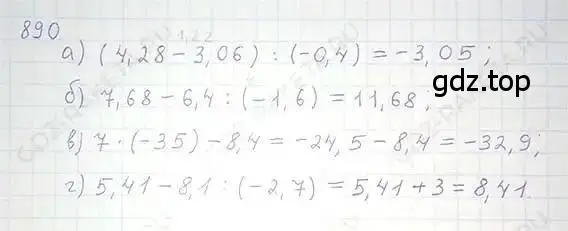 890
1,22
а) (4,28 - 3,06) : (-0,4) = -3,05;
б) 7,68 - 6,4 : (-1,6) = 11,68;
gdz.top
в) 7 · (-35) - 8,4 = -24,5 - 8,4 = -32,9;
г) 5,41 - 8,1 : (-2,7) = 5,41 + 3 = 8,41.